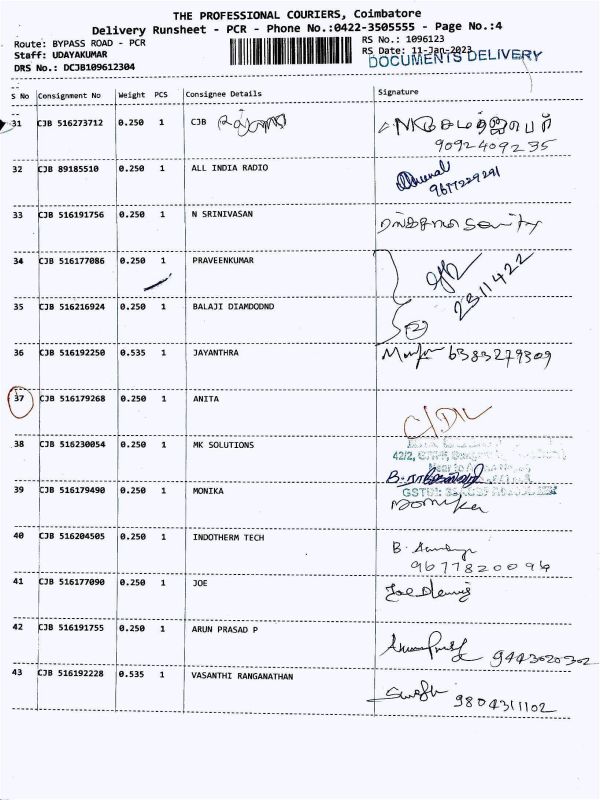 THE PROFESSIONAL COURIERS, Coimbatore
Delivery Runsheet - PCR - Phone No.:0422-3505555 - Page No.:4
Route: BYPASS ROAD - PCR RS No.: 1096123
Staff: UDAYAKUMAR RS Date: 11-Jan-2023
DOCUMENTS DELIVERY
DRS No.: DCJB109612304
S No Consignment No Weight PCS Consignee Details Signature
31 CJB 516273712 0.250 1 CJB
9092409235
32 CJB 89185510 0.250 1 ALL INDIA RADIO
9677229291
33 CJB 516191756 0.250 1 N SRINIVASAN
34 CJB 516177086 0.250 1 PRAVEENKUMAR
2311422
35 CJB 516216924 0.250 1 BALAJI DIAMDODND
2
36 CJB 516192250 0.535 1 JAYANTHRA 6383279309
37 CJB 516179268 0.250 1 ANITA
38 CJB 516230054 0.250 1 MK SOLUTIONS
42/2,
39 CJB 516179490 0.250 1 MONIKA
Monika
40 CJB 516204505 0.250 1 INDOTHERM TECH
9677820096
41 CJB 516177090 0.250 1 JOE
Joe Dennis
42 CJB 516191755 0.250 1 ARUN PRASAD P
9443020302
43 CJB 516192228 0.535 1 VASANTHI RANGANATHAN
9804311102